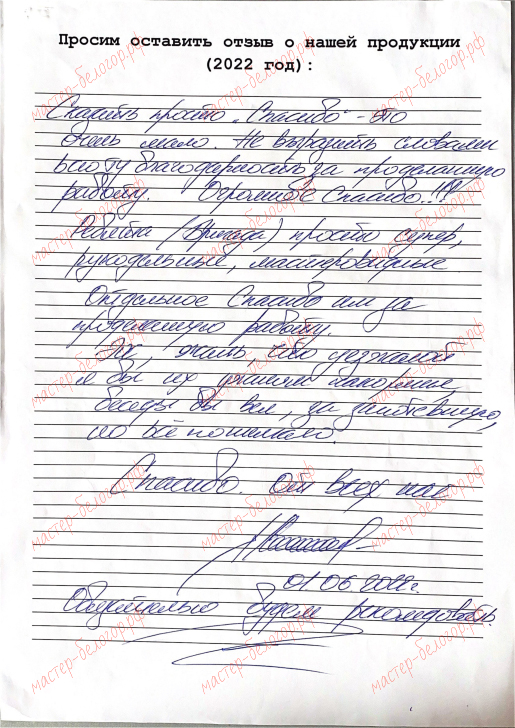 Просим оставить отзыв о нашей продукции
(2022 год):
Сказать просто „Спасибо" - это
очень мало. Не выразить словами
всю ту благодарность за проделанную
работу. Огромное Спасибо..!!!
Ребята (бригада) просто супер,
рукодельные, мастеровидные
Отдельное Спасибо им за
проделанную работу.
Эх, жаль, что
я бы их
беседы бы вел, за
но всё
Спасибо от всех нас
01.06.2022г.
Обязательно будем рекомедовать.
мастер-белогор.рф